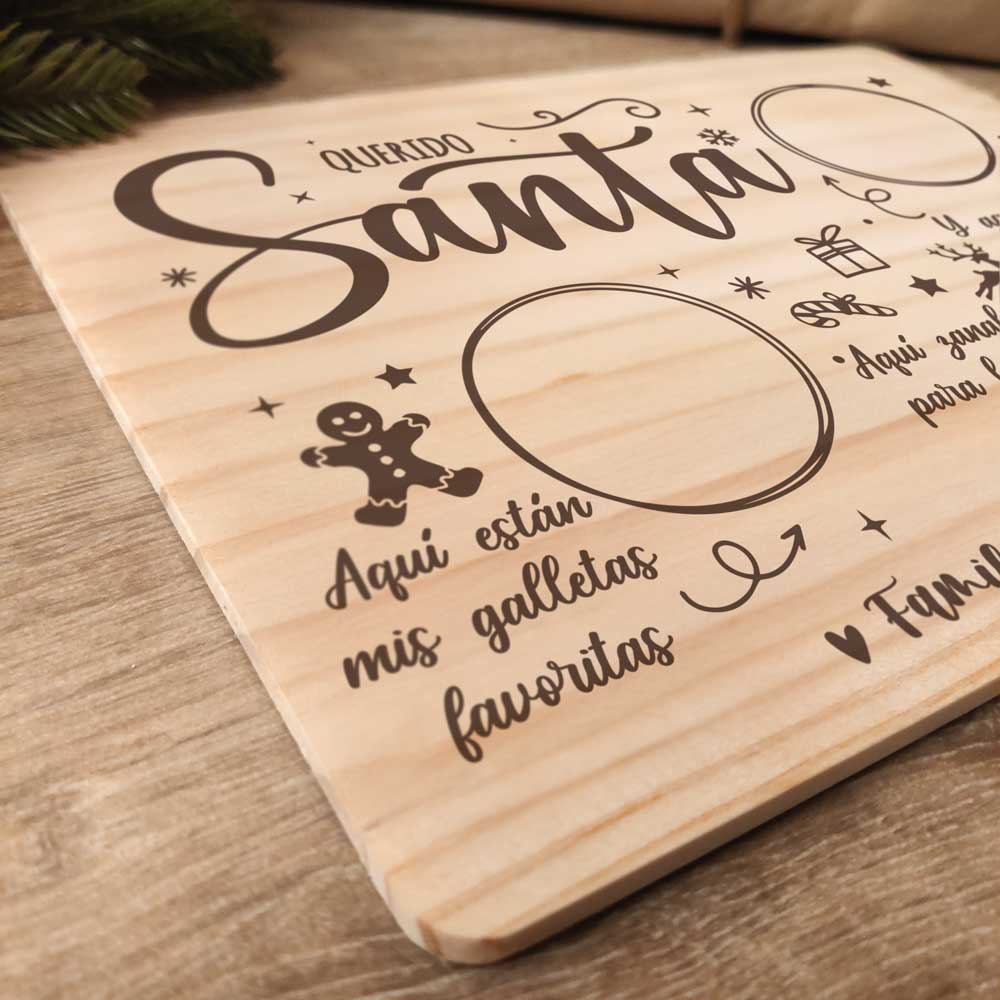 QUERIDO
Santa
Y
Aquí
para
Aquí están
mis galletas
favoritas